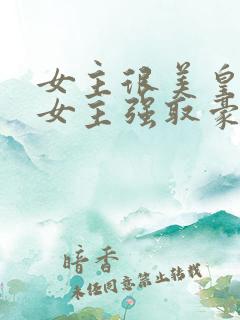 女主很美皇
女主强取豪
暗香
未经同意禁止转载